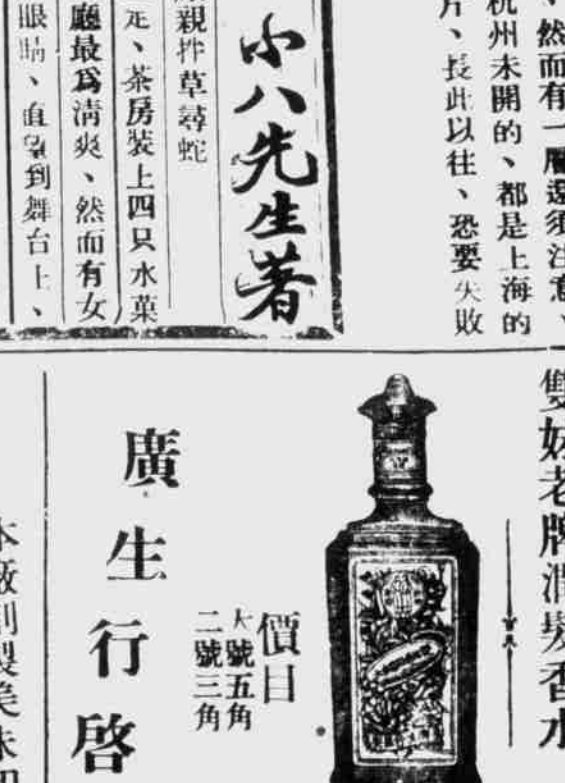 然而有一層還須注意、
杭州未開的、都是上海的
片、長此以往、恐要失敗
小八先生著
親拌草尋蛇
定、茶房裝上四只水菓
廳最爲清爽、然而有女
眼睛、直望到舞台上、
雙妹老牌潤髮香水
價目
大號五角
二號三角
廣生行啓
本廠創製美味